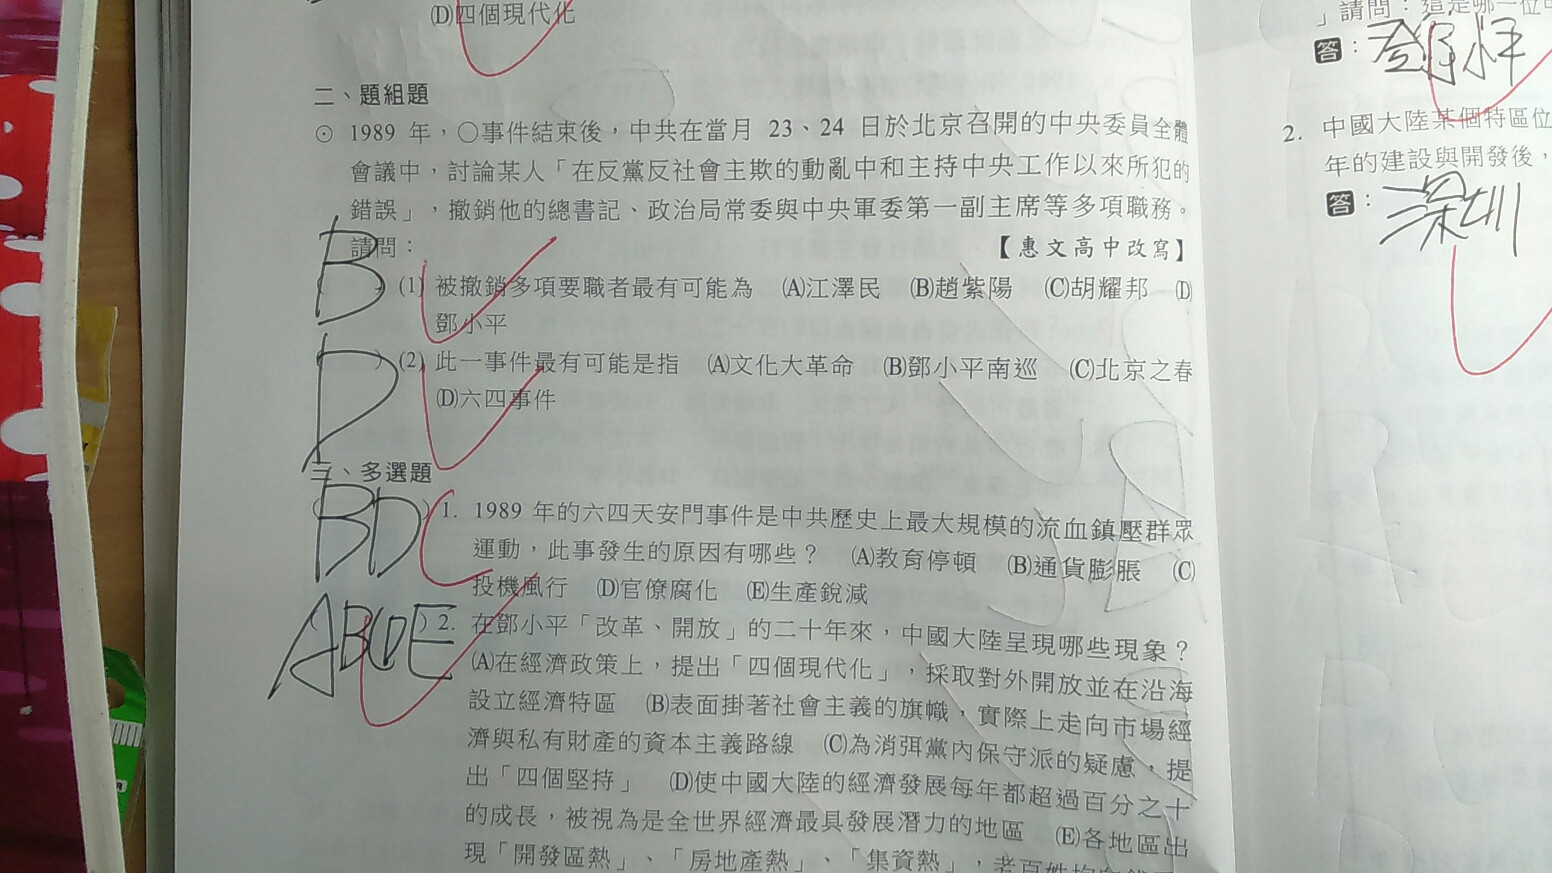 (D)四個現代化
二、題組題
⊙ 1989 年，○事件結束後，中共在當月 23、24 日於北京召開的中央委員全體
會議中，討論某人「在反黨反社會主欺的動亂中和主持中央工作以來所犯的
錯誤」，撤銷他的總書記、政治局常委與中央軍委第一副主席等多項職務。
請問： 【惠文高中改寫】
B ) (1) 被撤銷多項要職者最有可能為 (A)江澤民 (B)趙紫陽 (C)胡耀邦 (D)
鄧小平
D ) (2) 此一事件最有可能是指 (A)文化大革命 (B)鄧小平南巡 (C)北京之春
(D)六四事件
三、多選題
BD ) 1. 1989 年的六四天安門事件是中共歷史上最大規模的流血鎮壓群眾
運動，此事發生的原因有哪些？ (A)教育停頓 (B)通貨膨脹 (C)
投機風行 (D)官僚腐化 (E)生產銳減
ABCDE ) 2. 在鄧小平「改革、開放」的二十年來，中國大陸呈現哪些現象？
(A)在經濟政策上，提出「四個現代化」，採取對外開放並在沿海
設立經濟特區 (B)表面掛著社會主義的旗幟，實際上走向市場經
濟與私有財產的資本主義路線 (C)為消弭黨內保守派的疑慮，提
出「四個堅持」 (D)使中國大陸的經濟發展每年都超過百分之十
的成長，被視為是全世界經濟最具發展潛力的地區 (E)各地區出
現「開發區熱」、「房地產熱」、「集資熱」，老百姓
」請問：這是哪一位中
答：
2. 中國大陸某個特區位
年的建設與開發後，
答：深圳